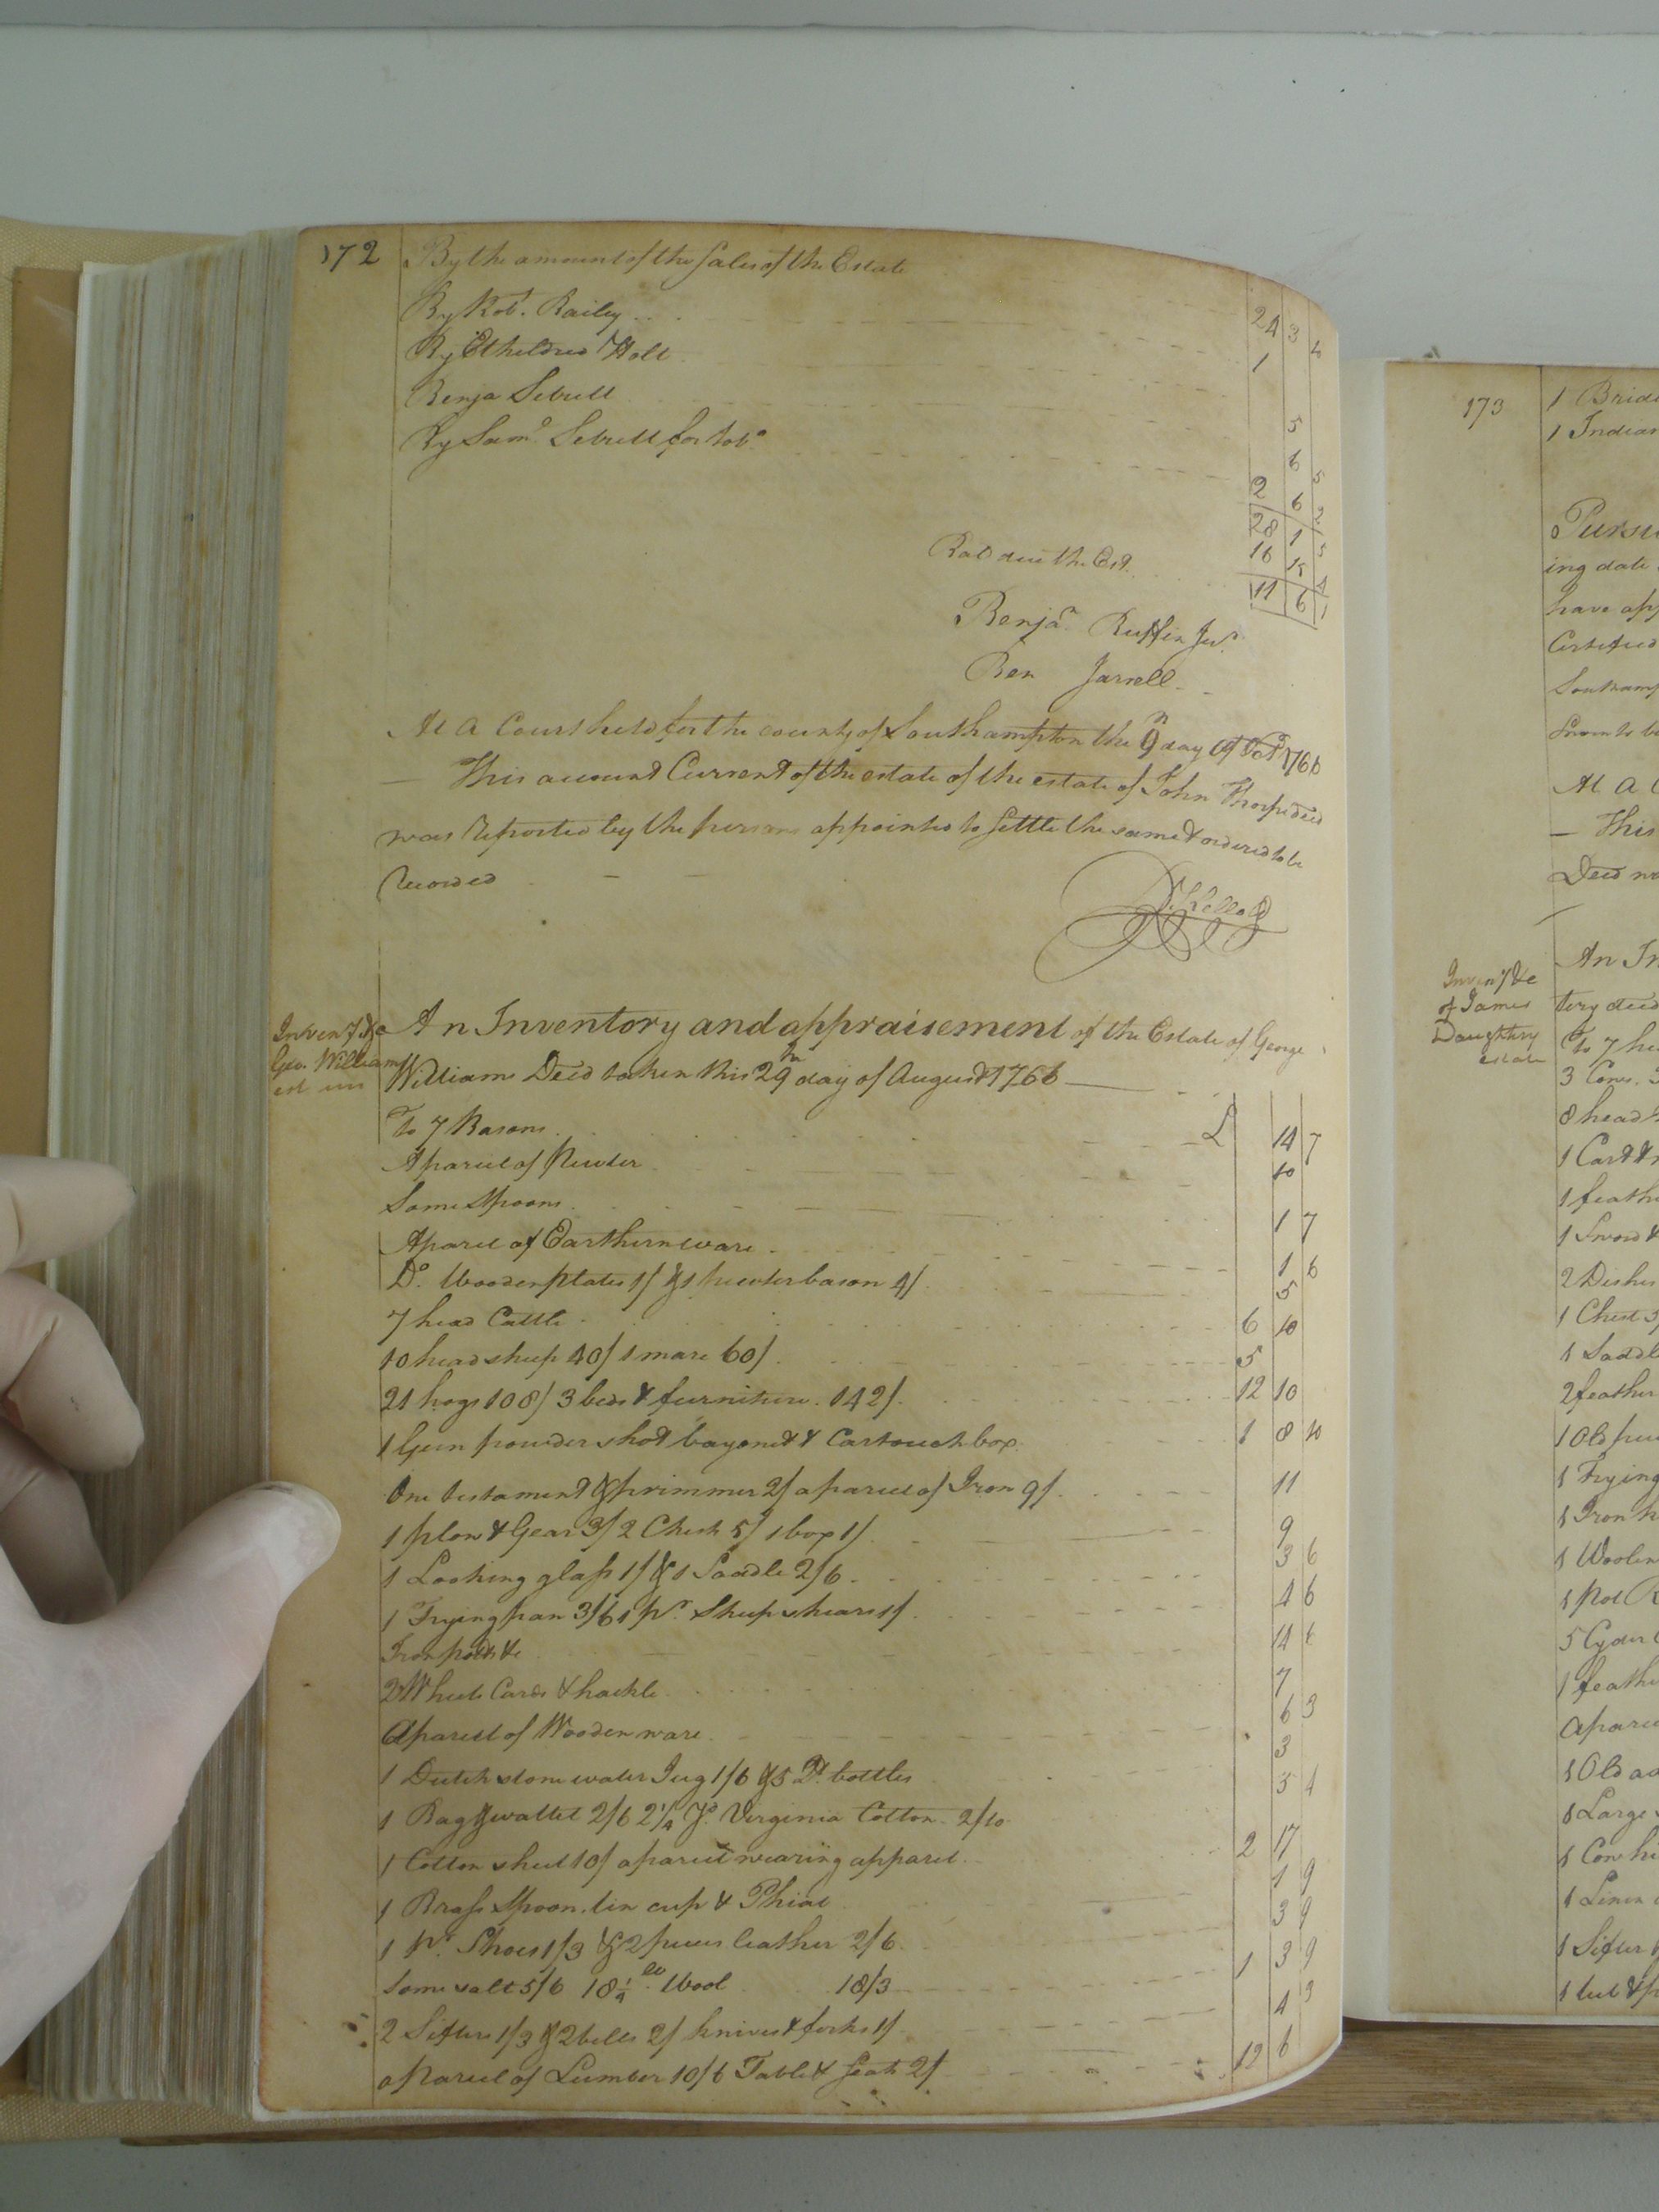 172
By the amount of the Sales of the Estate 24 3 6
By Robt. Bailey 1
By Etheldred Holt 5
Benja Sebrell 6 5
By Saml. Sebrell for tobo. 2 6 2
28 1 5
Bal due the Est. 16 15 4
11 6 1
Benja. Ruffin Junr.
Ben Jarrell
At A Court held for the county of Southampton the 9th day of Octr 1766
This account Current of the estate of the estate of John Thorp deced
was reported by the persons appointed to settle the same & ordered to be
recorded
R. Kello
Inventy &c
Geo. Williams
est
An Inventory and appraisement of the Estate of George
Williams Deced taken this 29th day of August 1766
To 7 Basons £ 14 7
A parcel of Pewter 10
Some spoons 1 7
A parcel of Earthern ware 1 6
Do. Wooden plates 1/ & 1 pewter bason 4/ 5
7 head Cattle 6 10
10 head sheep 40/ 1 mare 60/ 5
21 hogs 108/ 3 beds & furniture. 142/ 12 10
1 Gun powder shot bayonet & Cartouch box 1 8 10
One testament & primmer 2/ a parcel of Iron 9/ 11
1 plow & Gear 3/ 2 Chests 5/ 1 box 1/ 9
1 Looking glass 1/ & 1 Saddle 2/6 3 6
1 Frying pan 3/6 1 pr. Sheep shears 1/ 4 6
Iron pots &c 14 6
2 Wheels Cards & hackle 7
A parcel of Wooden ware 6 3
1 Dutch stone water Jug 1/6 & 5 Qt. bottles 3
1 Bag & wallet 2/6 2 1/4 yd. Virginia Cotton 2/10 5 4
1 Cotton sheet 10/ a parcel wearing apparel 2 17
1 Brass Spoon. tin cup & Phial 1 9
1 pr. Shoes 1/3 & 2 pieces leather 2/6 3 9
Some salt 5/6 18 1/4 lb. Wool 18/3 1 3 9
2 Sifters 1/3 & 2 bells 2/ knives & forks 1/ 4 3
a parcel of Lumber 10/6 Table & Seats 2/ 12 6
173
1 Brid
1 Indian
Pursu
ing date
have app
Certified
Southamp
Sworn to b
At A C
This
Deced wa
Inventy &c
of James
Daughtry
estate
An In
try deced
To 7 he
3 Cows.
8 head
1 Cart &
1 feath
1 Sword &
2 Dishes
1 Chest 3/
1 Saddl
2 feather
1 Old pew
1 Frying
1 Iron
1 Woolen
1 pot R
5 Cyder
1 feath
A parce
1 Old ad
1 Large
1 Cow hi
1 Linen
1 Sifter
1 tub & p